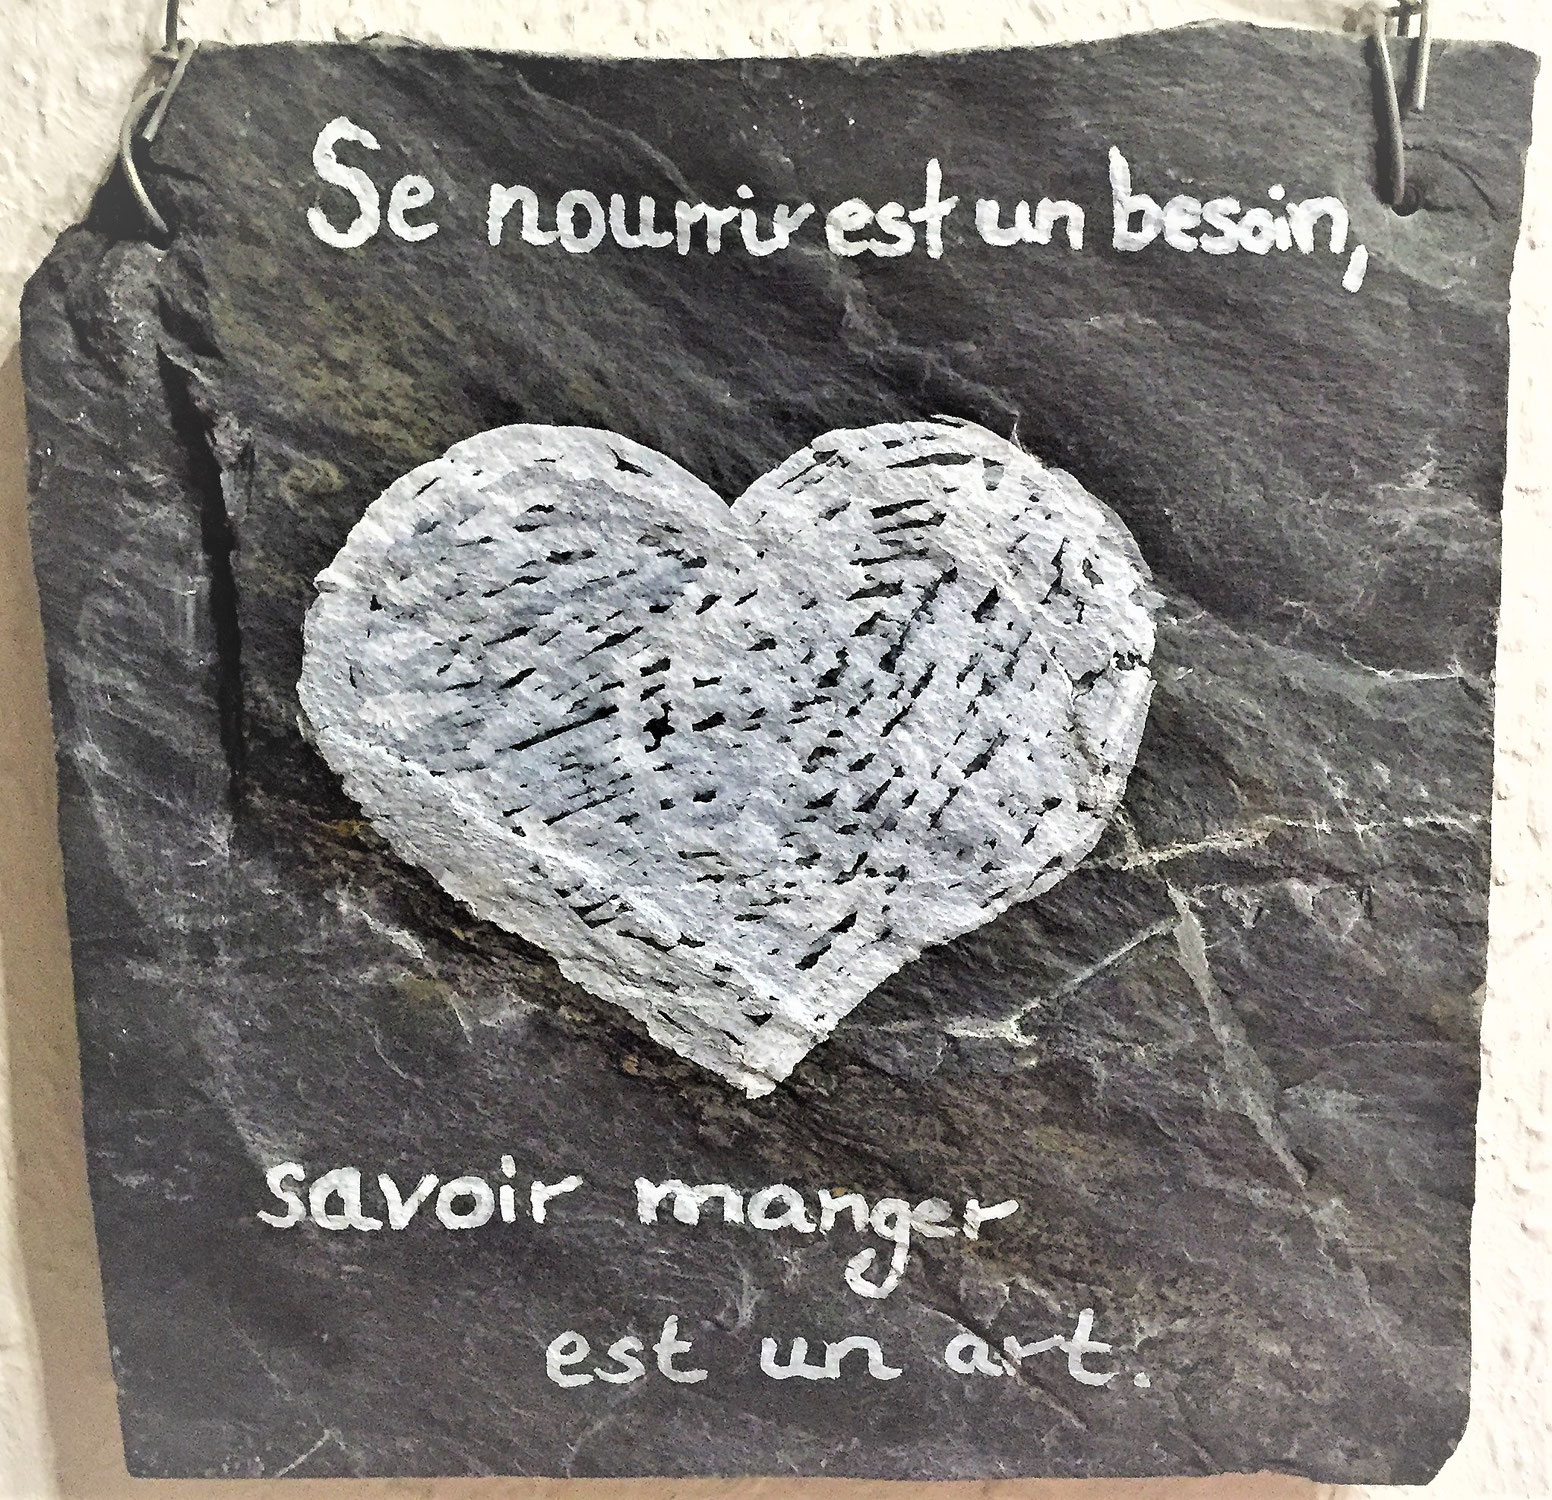 Se nourrir est un besoin,
savoir manger
est un art.